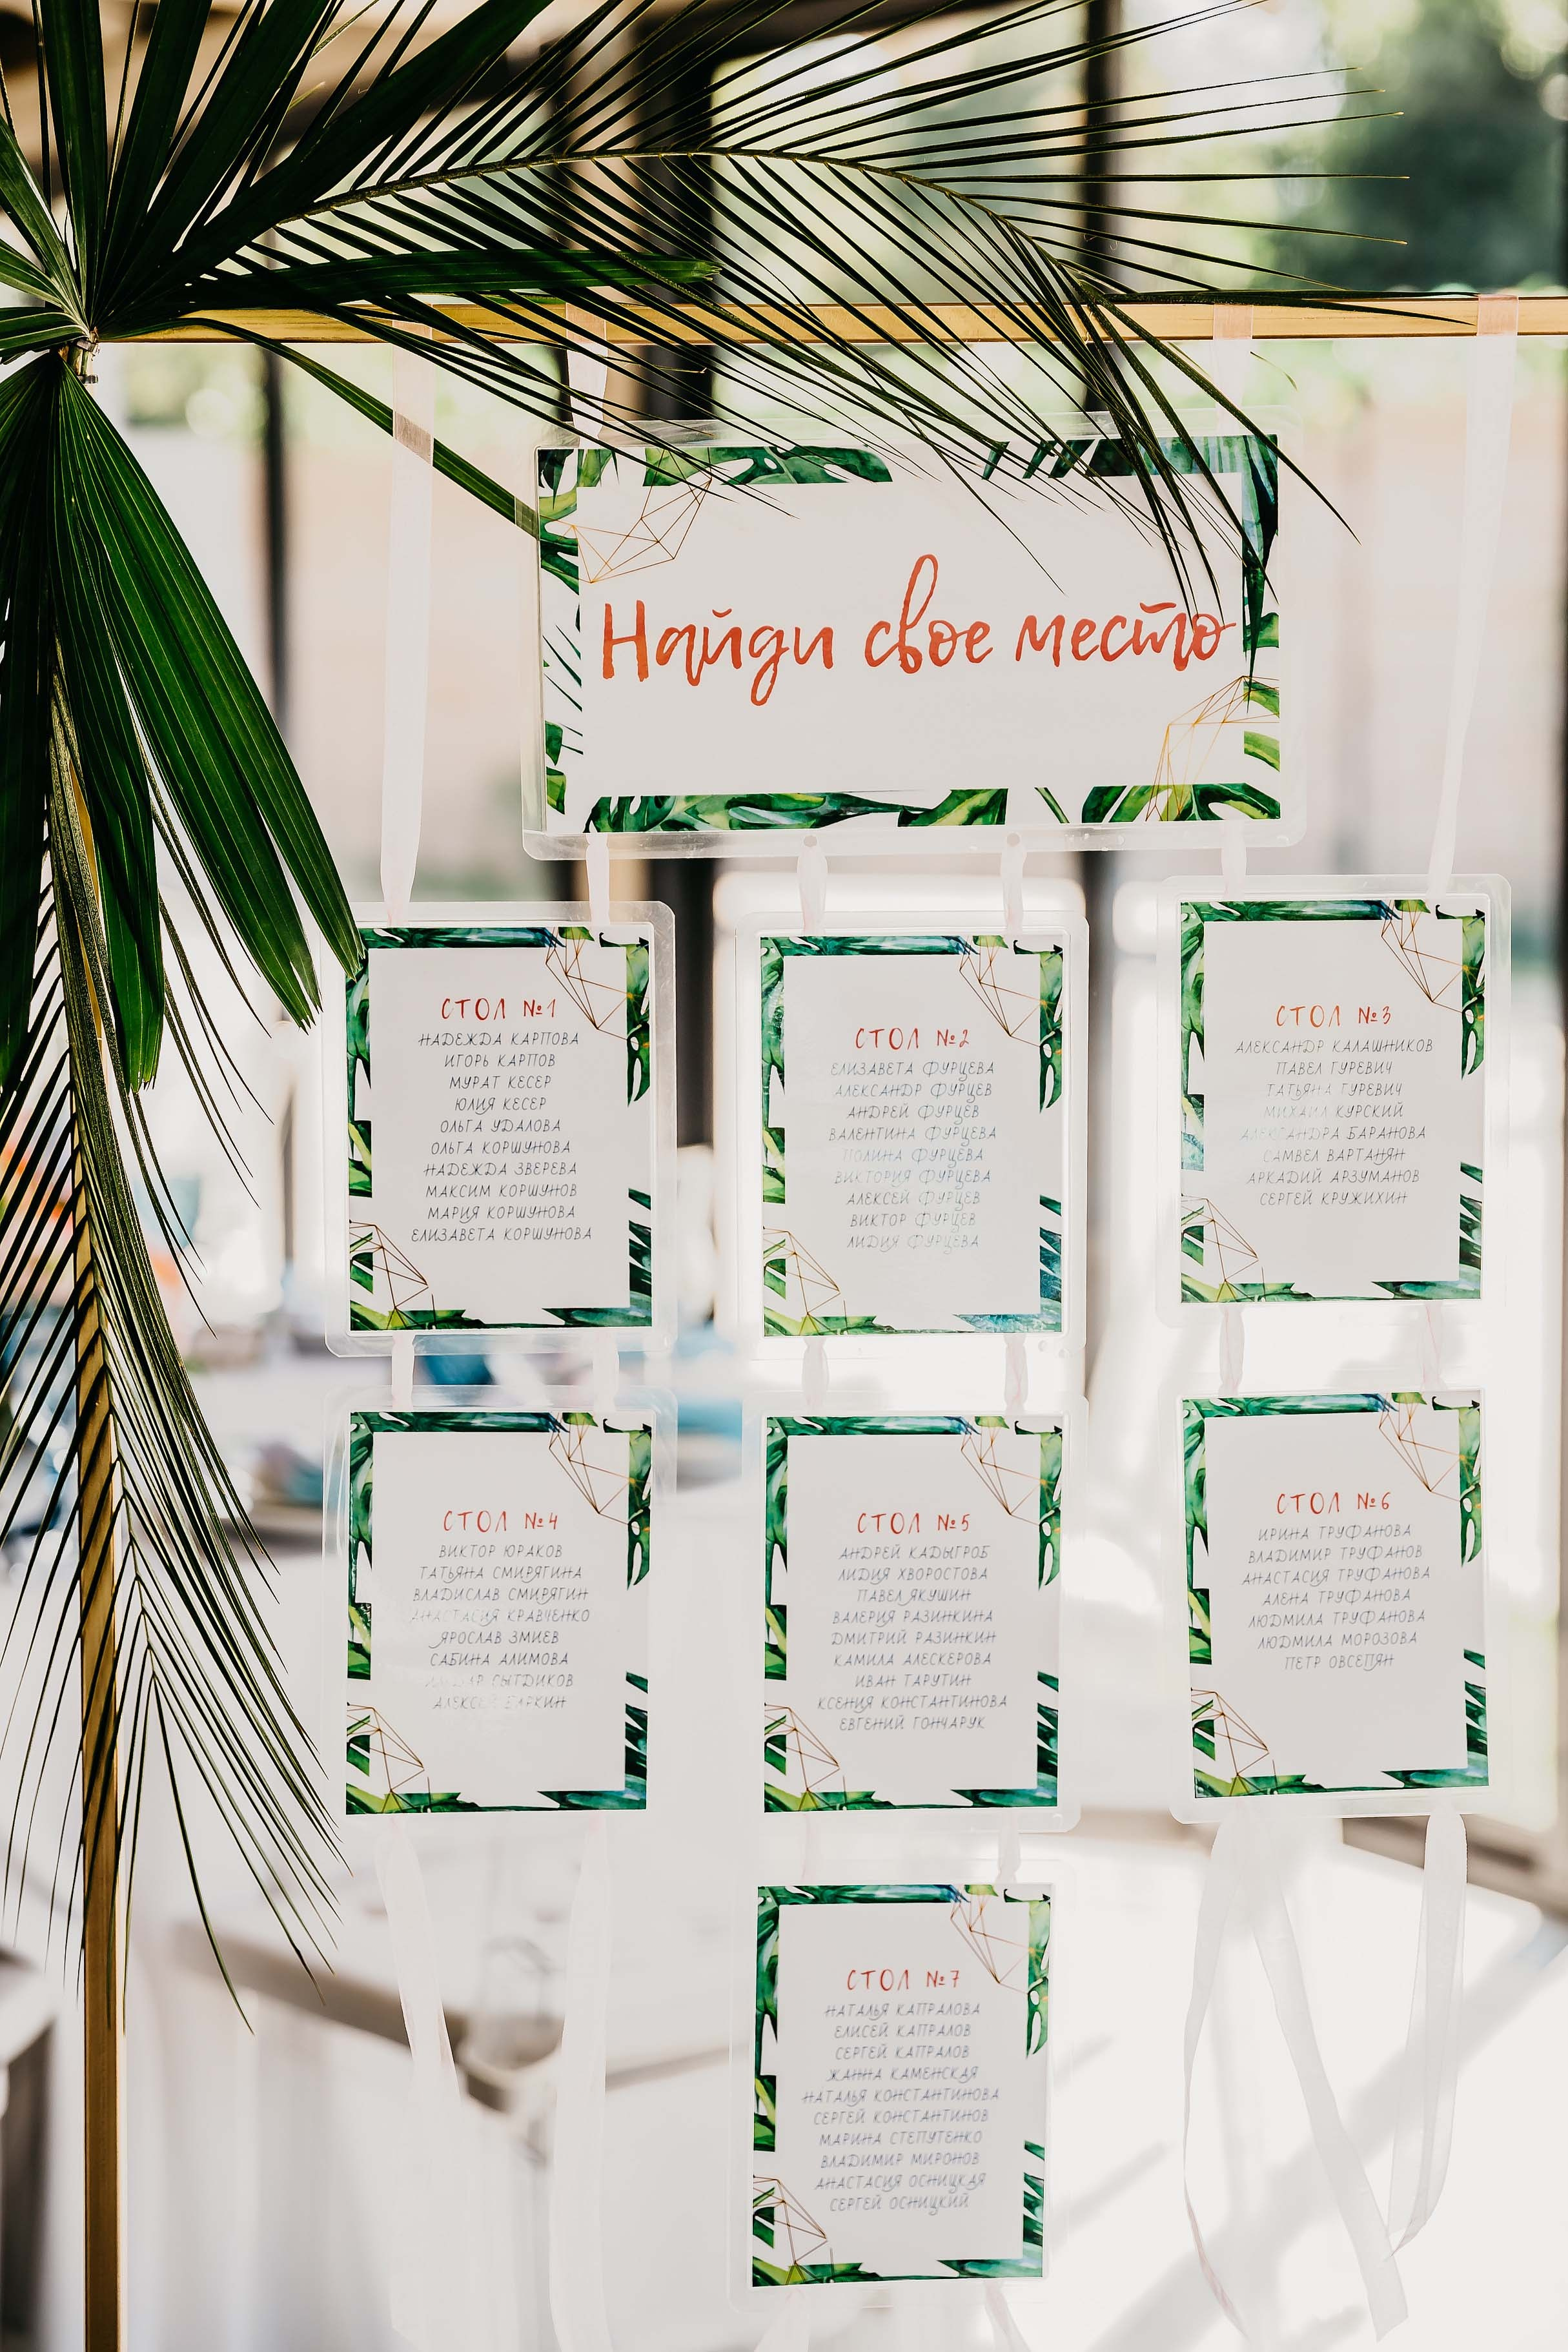 Найди свое место
СТОЛ №1
НАДЕЖДА КАРПОВА
ИГОРЬ КАРПОВ
МУРАТ КЕСЕР
ЮЛИЯ КЕСЕР
ОЛЬГА УДАЛОВА
ОЛЬГА КОРШУНОВА
НАДЕЖДА ЗВЕРЕВА
МАКСИМ КОРШУНОВ
МАРИЯ КОРШУНОВА
ЕЛИЗАВЕТА КОРШУНОВА
СТОЛ №2
ЕЛИЗАВЕТА ФУРЦЕВА
АЛЕКСАНДР ФУРЦЕВ
АНДРЕЙ ФУРЦЕВ
ВАЛЕНТИНА ФУРЦЕВА
ПОЛИНА ФУРЦЕВА
ВИКТОРИЯ ФУРЦЕВА
АЛЕКСЕЙ ФУРЦЕВ
ВИКТОР ФУРЦЕВ
ЛИДИЯ ФУРЦЕВА
СТОЛ №3
АЛЕКСАНДР КАЛАШНИКОВ
ПАВЕЛ ГУРЕВИЧ
ТАТЬЯНА ГУРЕВИЧ
МИХАИЛ КУРСКИЙ
АЛЕКСАНДРА БАРАНОВА
САМВЕЛ ВАРТАНЯН
АРКАДИЙ АРЗУМАНОВ
СЕРГЕЙ КРУЖИХИН
СТОЛ №4
ВИКТОР ЮРАКОВ
ТАТЬЯНА СМИРЯГИНА
ВЛАДИСЛАВ СМИРЯГИН
АНАСТАСИЯ КРАВЧЕНКО
ЯРОСЛАВ ЗМИЕВ
САБИНА АЛИМОВА
СЫТДИКОВ
АЛЕКСЕЙ
СТОЛ №5
АНДРЕЙ КАДЫГРОБ
ЛИДИЯ ХВОРОСТОВА
ПАВЕЛ ЯКУШИН
ВАЛЕРИЯ РАЗИНКИНА
ДМИТРИЙ РАЗИНКИН
КАМИЛА АЛЕСКЕРОВА
ИВАН ТАРУТИН
КСЕНИЯ КОНСТАНТИНОВА
ЕВГЕНИЙ ГОНЧАРУК
СТОЛ №6
ИРИНА ТРУФАНОВА
ВЛАДИМИР ТРУФАНОВ
АНАСТАСИЯ ТРУФАНОВА
АЛЕНА ТРУФАНОВА
ЛЮДМИЛА ТРУФАНОВА
ЛЮДМИЛА МОРОЗОВА
ПЕТР ОВСЕПЯН
СТОЛ №7
НАТАЛЬЯ КАПРАЛОВА
ЕЛИСЕЙ КАПРАЛОВ
СЕРГЕЙ КАПРАЛОВ
ЖАННА КАМЕНСКАЯ
НАТАЛЬЯ КОНСТАНТИНОВА
СЕРГЕЙ КОНСТАНТИНОВ
МАРИНА СТЕПУТЕНКО
ВЛАДИМИР МИРОНОВ
АНАСТАСИЯ ОСНИЦКАЯ
СЕРГЕЙ ОСНИЦКИЙ